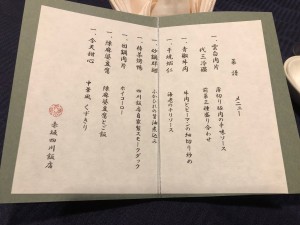 菜譜 メニュー
一、雲白肉片 薄切り豚肉の辛味ソース
代三冷碟 前菜三種盛り合わせ
一、青椒牛肉 牛肉とピーマンの細切り炒め
一、干焼蝦仁 海老のチリソース
ふかひれの醤油煮込み
一、樟茶鴨 四川飯店自家製スモークダック
一、回鍋肉片 ホイコーロー
一、陳麻婆豆腐 陳麻婆豆腐とご飯
一、今天甜心 中華風くずきり
赤坂四川飯店